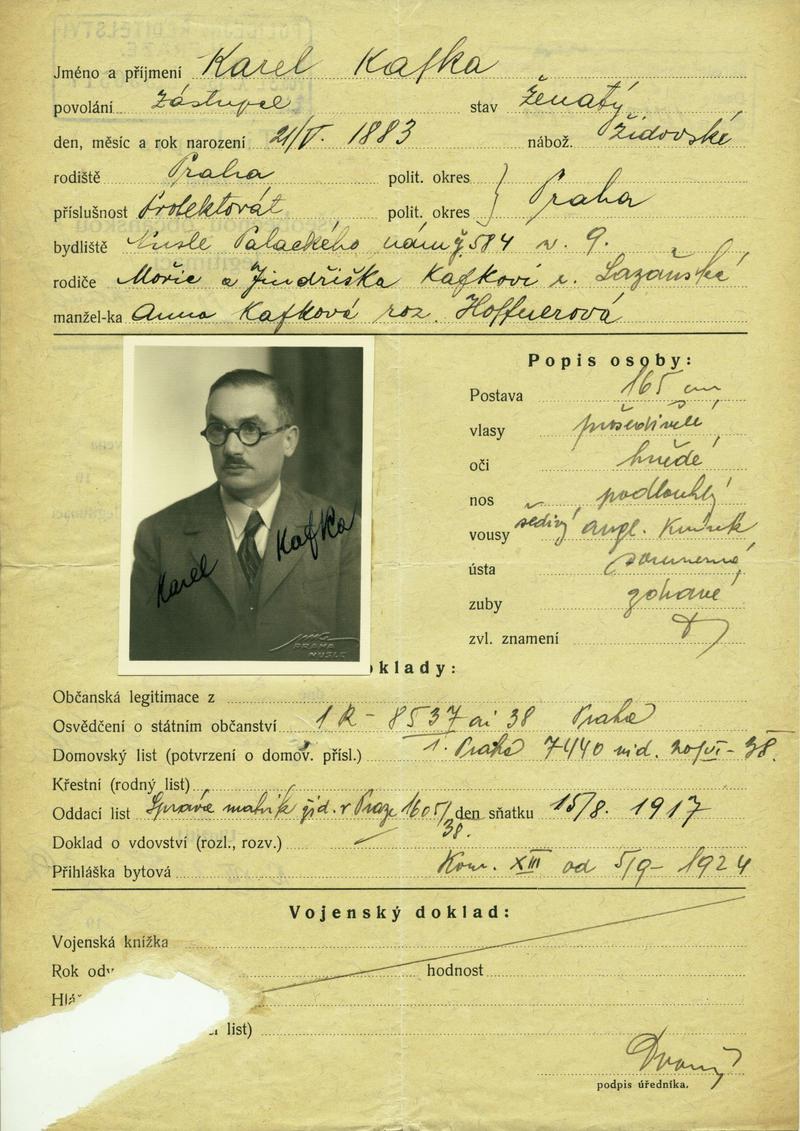 Jméno a příjmení Karel Kafka
povolání Zástupce stav Ženatý
den, měsíc a rok narození 21/V. 1883 nábož. Židovské
rodiště Praha polit. okres
příslušnost Protektorát polit. okres } Praha
bydliště Nusle Palackého nám č. 584 n. 9.
rodiče Mořic a Jindřiška Kafkovi r. Lazanské
manžel-ka Anna Kafková roz. Hoffnerová
Popis osoby:
Postava 165 cm
vlasy prošedivělé
oči hnědé
nos podlouhlý
vousy šedivý angl. Knírek
ústa souměrná
zuby zdravé
zvl. znamení
Karel Kafka
PRAHA
NUSLE
oklady:
Občanská legitimace z
Osvědčení o státním občanství 1 R - 8537 ai 38 Praha
Domovský list (potvrzení o domov. přísl.) 1. Praha 7440 vid. 20/VI - 38.
Křestní (rodný list)
Oddací list Správa matrik žid. v Praze 1605/38. den sňatku 15/8. 1917
Doklad o vdovství (rozl., rozv.)
Přihláška bytová Kom. XIII od 5/9 - 1924
Vojenský doklad:
Vojenská knížka
Rok odv
hodnost
Hlá
list)
podpis úředníka.